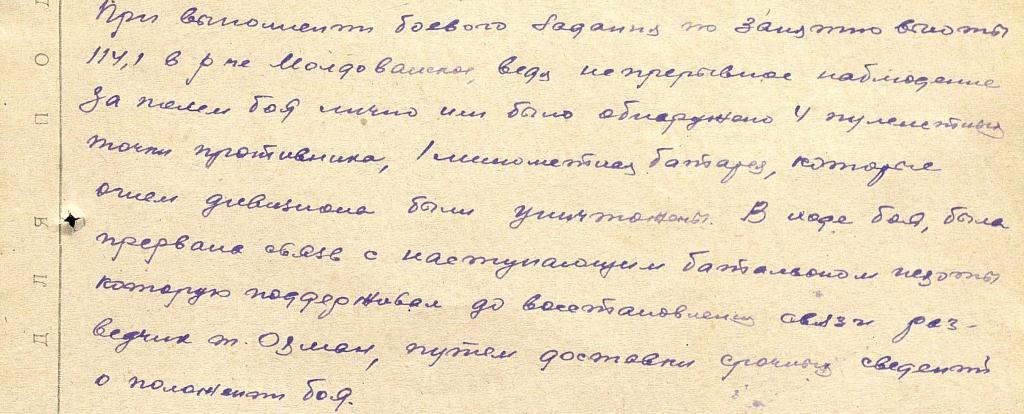 При выполнении боевого задания по занятию высоты
114,1 в р-не Молдаванское, ведя непрерывное наблюдение
за полем боя лично им было обнаружено 4 пулеметных
точки противника, 1 минометная батарея, которые
огнем дивизиона были уничтожены. В ходе боя, была
прервана связь с наступающим батальоном пехоты
которую поддерживал до восстановления связи раз-
ведчик т. Озман, путем доставки срочных сведений
о положении боя.
ДЛЯ ПОД